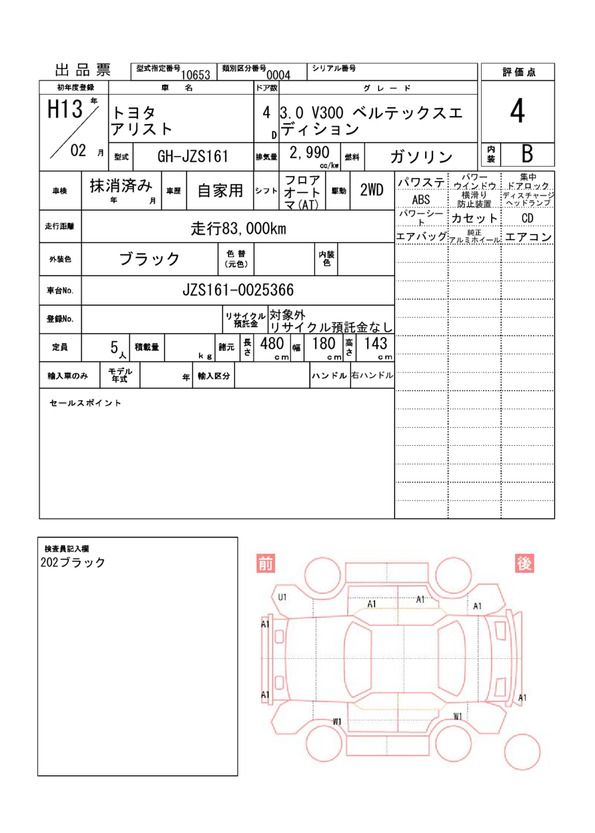 出品票 型式指定番号 10653 類別区分番号 0004 シリアル番号 評価点
初年度登録 車名 ドア数 グレード
H13 年 トヨタ 4 3.0 V300 ベルテックスエ 4
アリスト D ディション
02 月 型式 GH-JZS161 排気量 2,990 cc/kw 燃料 ガソリン 内装 B
車検 抹消済み 年 月 車歴 自家用 シフト フロア
オート
マ(AT) 駆動 2WD
パワステ パワー
ウインドウ 集中
ドアロック
ABS 横滑り
防止装置 ディスチャージ
ヘッドランプ
パワーシー
ト カセット CD
エアバッグ 純正
アルミホイール エアコン
走行距離 走行83,000km
外装色 ブラック 色替
(元色) 内装
色
車台No. JZS161-0025366
登録No. リサイクル
預託金 対象外
リサイクル預託金なし
定員 5人 積載量 kg 諸元 長さ 480 cm 幅 180 cm 高さ 143 cm
輸入車のみ モデル
年式 年 輸入区分 ハンドル 右ハンドル
セールスポイント
検査員記入欄
202ブラック
前 後
U1 A1 A1 A1
A1
A1 A1
W1 W1